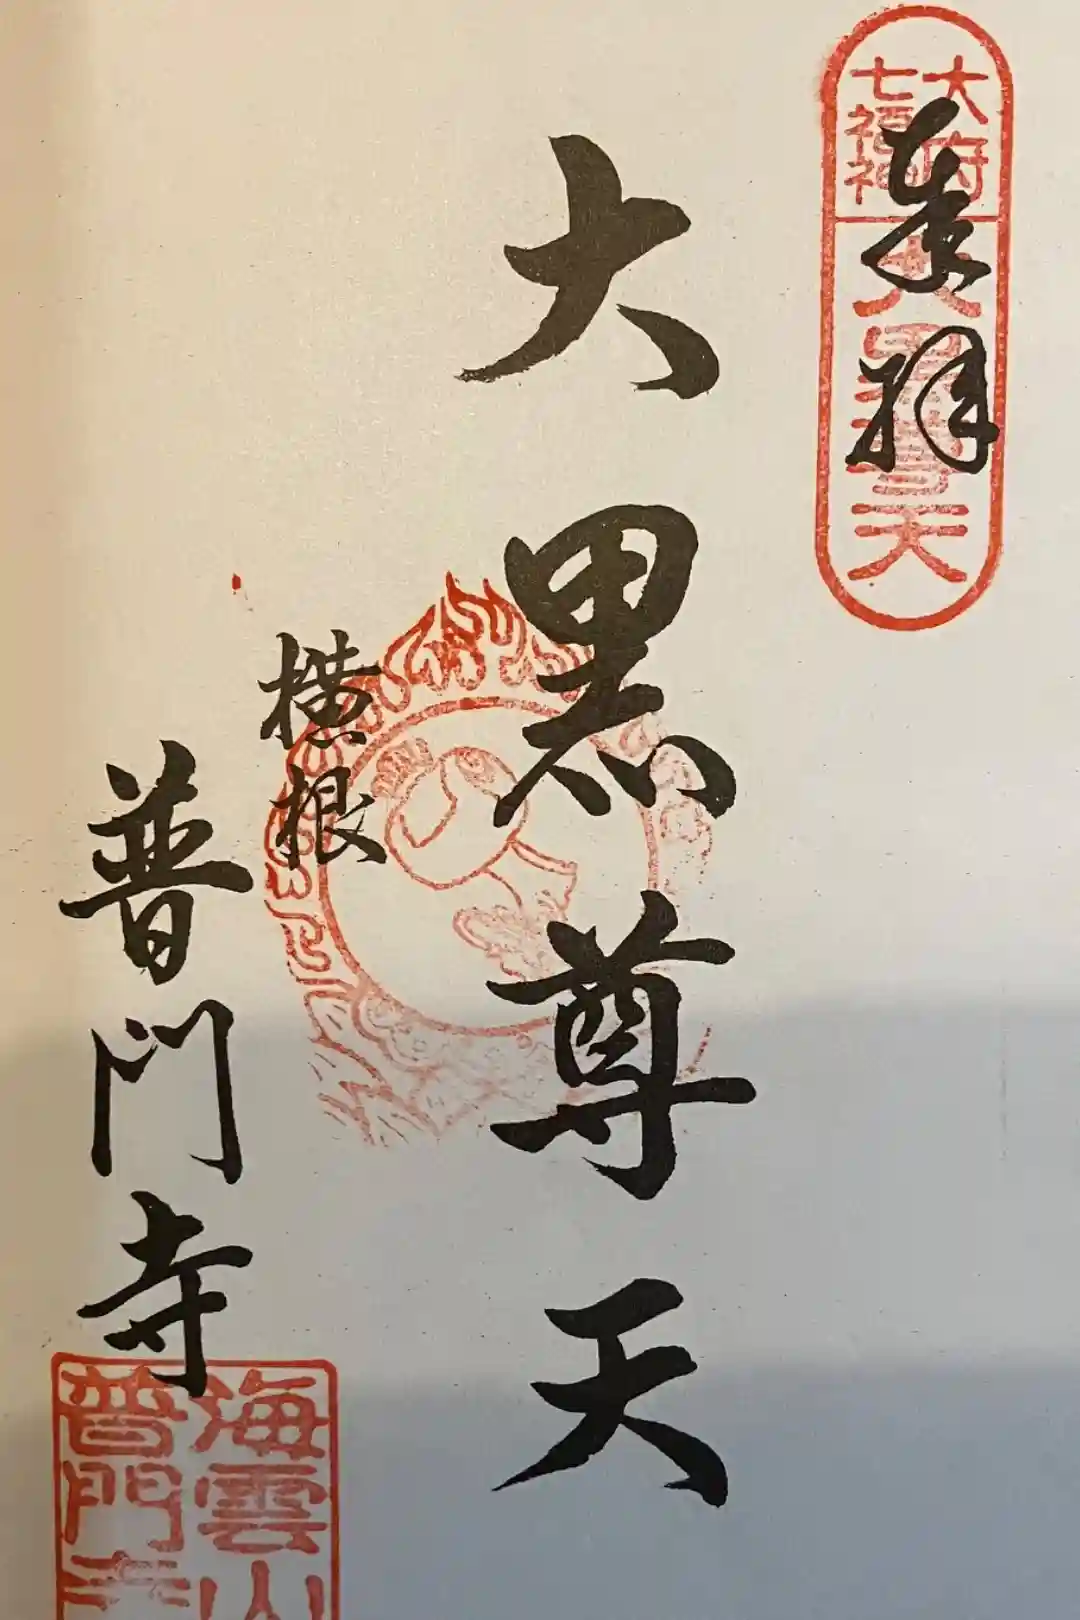 奉拝
大府
七福神
大黒尊天
大黒尊天
横根
普門寺
海雲山
普門寺